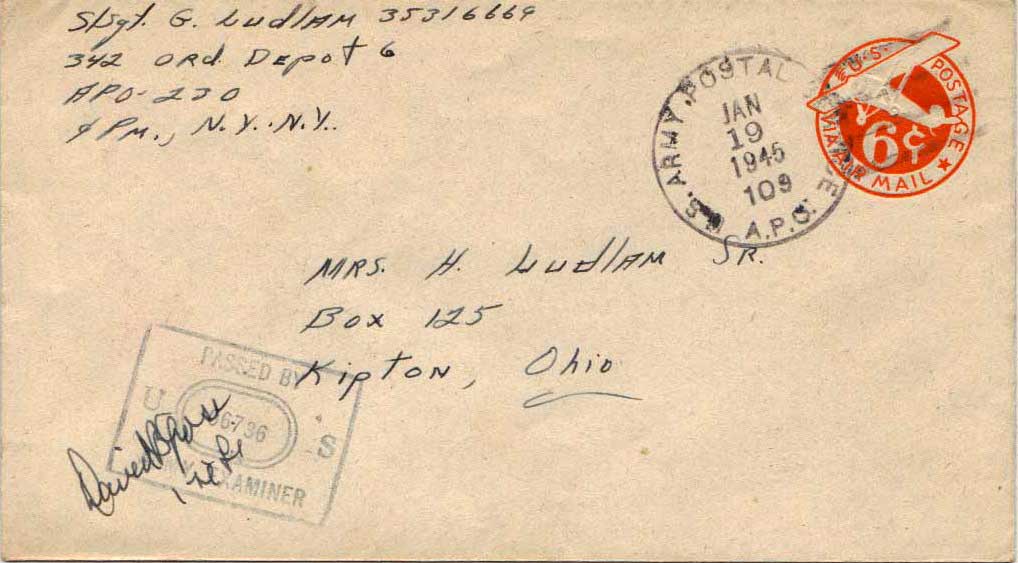 S/Sgt. G. Ludlam 35316669
342 Ord. Depot 6
APO-230
% Pm., N.Y. N.Y.
U.S. ARMY POSTAL
JAN
19
1945
109
A.P.O.
U.S. POSTAGE
6¢
VIA AIR MAIL
Mrs. H. Ludlam Sr.
Box 125
Kipton, Ohio
PASSED BY
U S
36736
EXAMINER
David